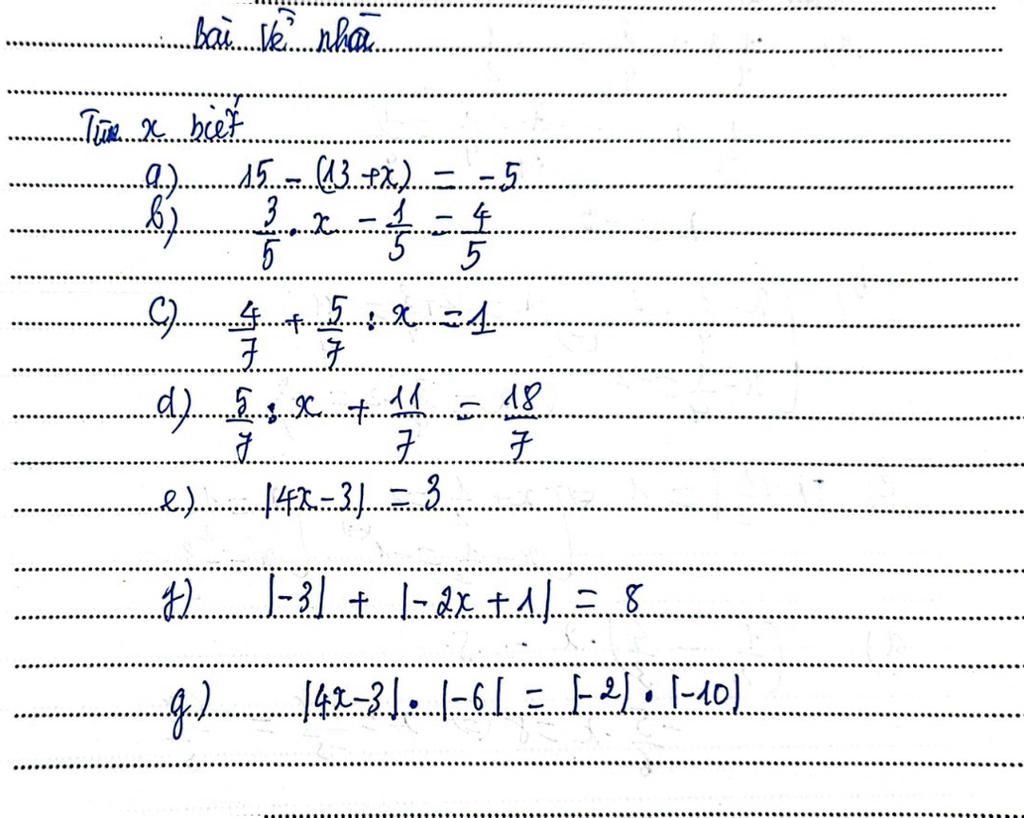 Bài Về nhà
Tìm x biết
a) 15 - (13 + x) = -5
b) 3/5 . x - 1/5 = 4/5
c) 4/7 + 5/7 : x = 1
d) 5/7 : x + 11/7 = 18/7
e) |4x - 3| = 3
f) |-3| + |-2x + 1| = 8
g) |4x - 3| . |-6| = |-2| . |-10|